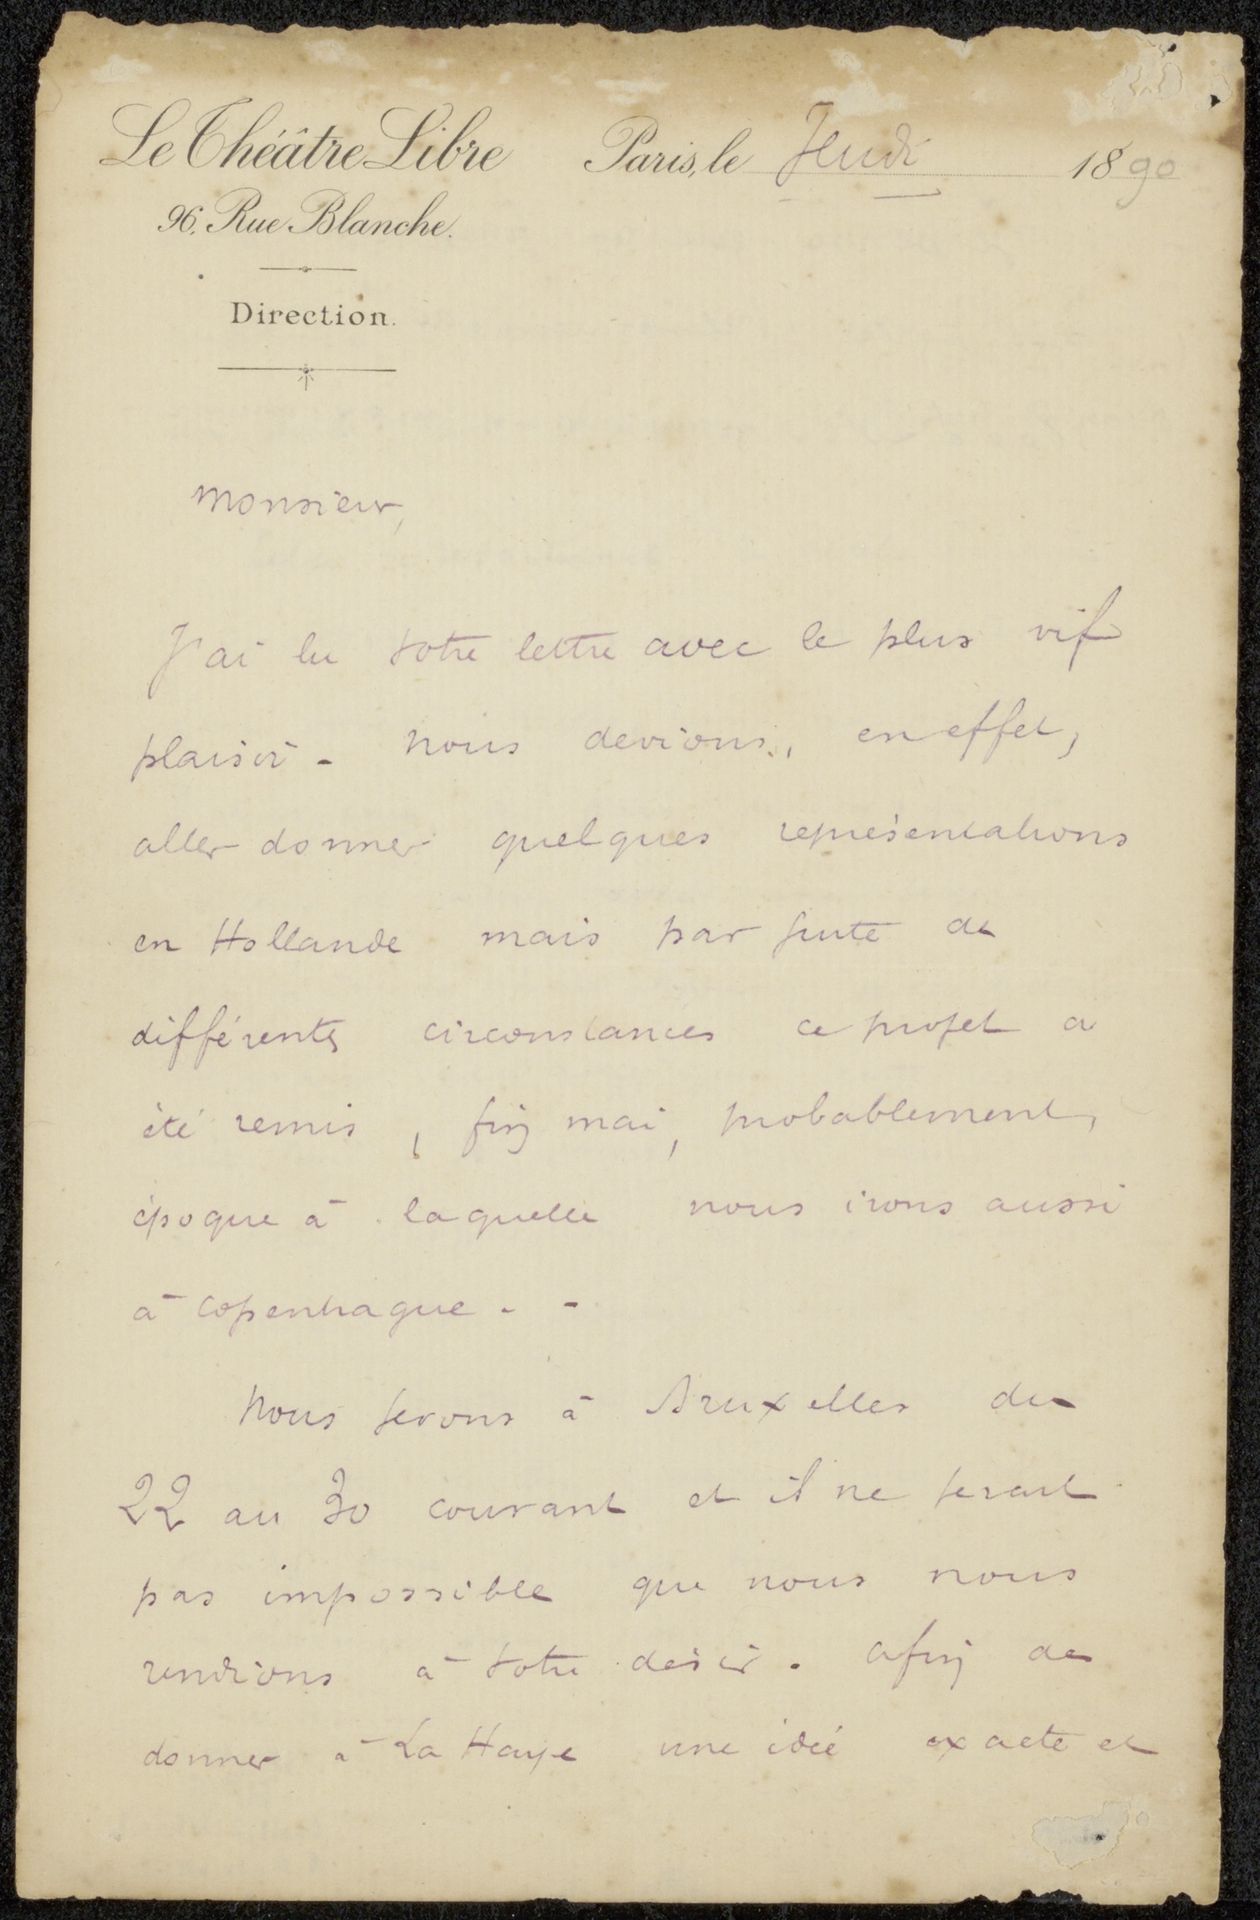 Le Théâtre Libre
Paris, le Jeudi 1890
96, Rue Blanche.
Direction.
Monsieur,
J'ai lu votre lettre avec le plus vif
plaisir - nous devions, en effet,
aller donner quelques représentations
en Hollande mais par suite de
différentes circonstances ce projet a
été remis, fin mai, probablement,
époque à laquelle nous irons aussi
à Copenhague. -
Nous serons à Bruxelles du
22 au 30 courant et il ne serait
pas impossible que nous nous
rendions à votre désir. afin de
donner à La Haye une idée exacte et